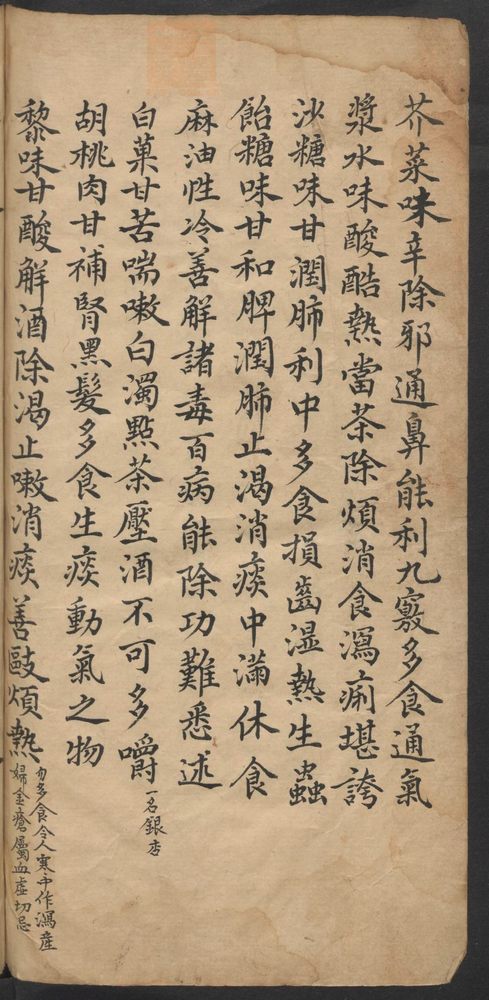 芥菜味辛除邪通鼻能利九竅多食通氣
漿水味酸酷熱當茶除煩消食瀉痢堪誇
沙糖味甘潤肺利中多食損齒湿熱生蟲
飴糖味甘和脾潤肺止渴消痰中滿休食
麻油性冷善解諸毒百病能除功難悉述
白菓甘苦喘嗽白濁點茶壓酒不可多嚼 一名銀杏
胡桃肉甘補腎黑髮多食生痰動氣之物
黎味甘酸解酒除渴止嗽消痰善敺煩熱 勿多食令人寒中作瀉産
婦金瘡屬血虛切忌